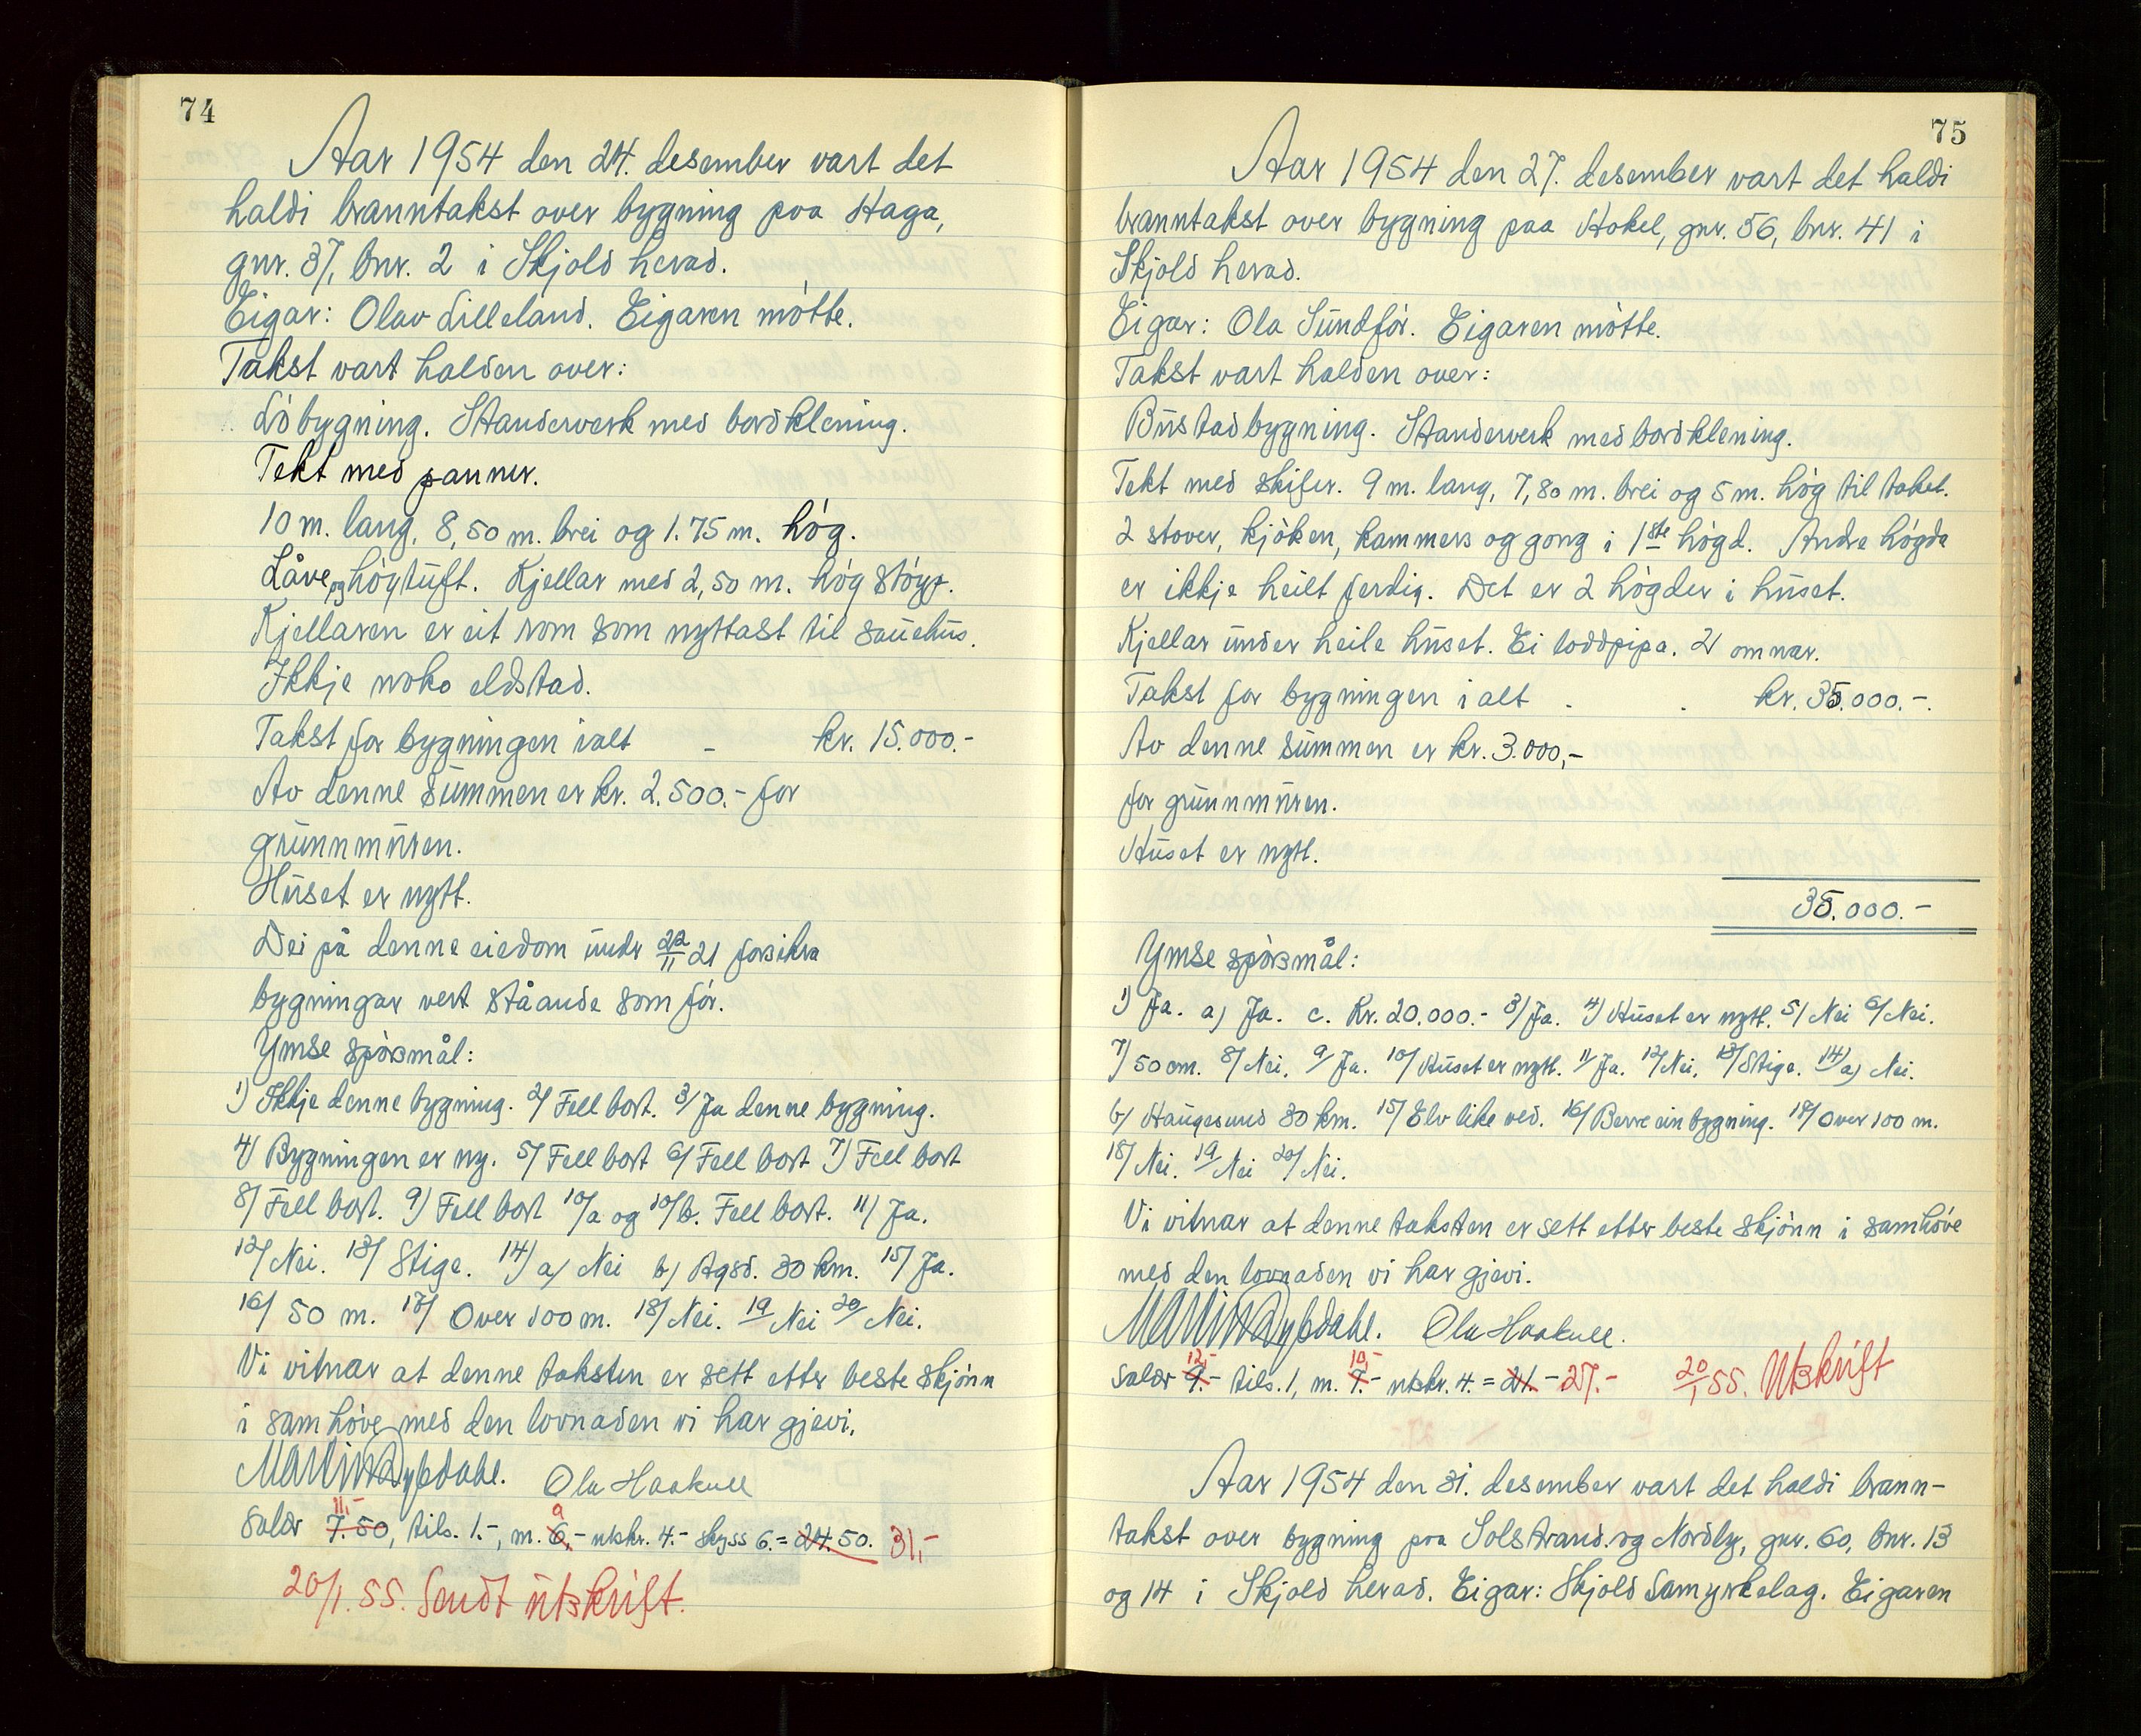 74
Aar 1954 den 24. desember vart det
haldi branntakst over bygning paa Haga,
gnr. 37, bnr. 2 i Skjold herad.
Eigar: Olav Lilleland. Eigaren møtte.
Takst vart halden over:
Løbygning. Standerverk med bordklening.
Tekt med panner.
10 m. lang, 8,50 m. brei og 1.75 m. høg.
Låve og høytuft. Kjellar med 2,50 m. høg støyp.
Kjellaren er eit rom som nyttast til sauehus.
Ikkje noko eldstad.
Takst for bygningen ialt - kr. 15.000.-
Av denne summen er kr. 2.500.- for
grunnmuren.
Huset er nytt.
Dei på denne eiedom undr 22/11 21 forsikra
bygningar vert ståande som før.
Ymse spørsmål:
1) Ikkje denne bygning. 2/ Fell bort. 3/ Ja denne bygning.
4) Bygningen er ny. 5/ Fell bort 6/ Fell bort 7) Fell bort
8/ Fell bort. 9) Fell bort 10/a og 10/b. Fell bort. 11/ Ja.
12/ Nei. 13/ Stige. 14) a) Nei b) Hgsd. 30 km. 15/ Ja.
16/ 50 m. 17/ Over 100 m. 18/ Nei. 19 Nei 20/ Nei.
Vi vitnar at denne taksten er sett etter beste skjønn
i samhøve med den lovnaden vi har gjevi.
Martin Dybdahl. Ola Haakull
11,- 9
Salær 7.50, tils. 1.-, m. 6,- utskr. 4.- skyss 6.= 24.50. 31,-
20/1. 55. Sendt utskrift.
75
Aar 1954 den 27. desember vart det haldi
branntakst over bygning paa Hokel, gnr. 56, bnr. 41 i
Skjold herad.
Eigar: Ola Sundfør. Eigaren møtte.
Takst vart halden over:
Bustadbygning. Standerverk med bordklening.
Tekt med skifer. 9 m. lang, 7,80 m. brei og 5 m. høg til taket.
2 stover, kjøken, kammers og gong i 1ste høgd. Andre høgda
er ikkje heilt ferdig. Det er 2 høgder i huset.
Kjellar under heile huset. Ei loddpipa. 2 omnar.
Takst for bygningen i alt . . kr. 35.000.-.
Av denne summen er kr. 3.000,-
for grunnmuren.
Huset er nytt.
35.000.-
Ymse spørsmål:
1) Ja. a) Ja. c. Kr. 20.000.- 3/ Ja. 4) Huset er nytt. 5/ Nei 6/ Nei.
7/ 50 cm. 8/ Nei. 9/ Ja. 10/ Huset er nytt. 11/ Ja. 12/ Nei. 13/ Stige. 14) a) Nei.
b) Haugesund 30 km. 15/ Elv like ved. 16/ Berre ein bygning. 17/ Over 100 m.
18/ Nei. 19 Nei 20/ Nei.
Vi vitnar at denne taksten er sett etter beste skjønn i samhøve
med den lovnaden vi har gjevi.
Martin Dybdahl. Ola Haakull.
12,- 10,-
Salær 9.- tils. 1, m. 7.- utskr. 4. = 21.- 27.- 20/1 55. Utskrift
Aar 1954 den 31. desember vart det haldi brann-
takst over bygning paa Solstrand og Nordly, gnr. 60, bnr. 13
og 14 i Skjold herad. Eigar: Skjold Samyrkelag. Eigaren